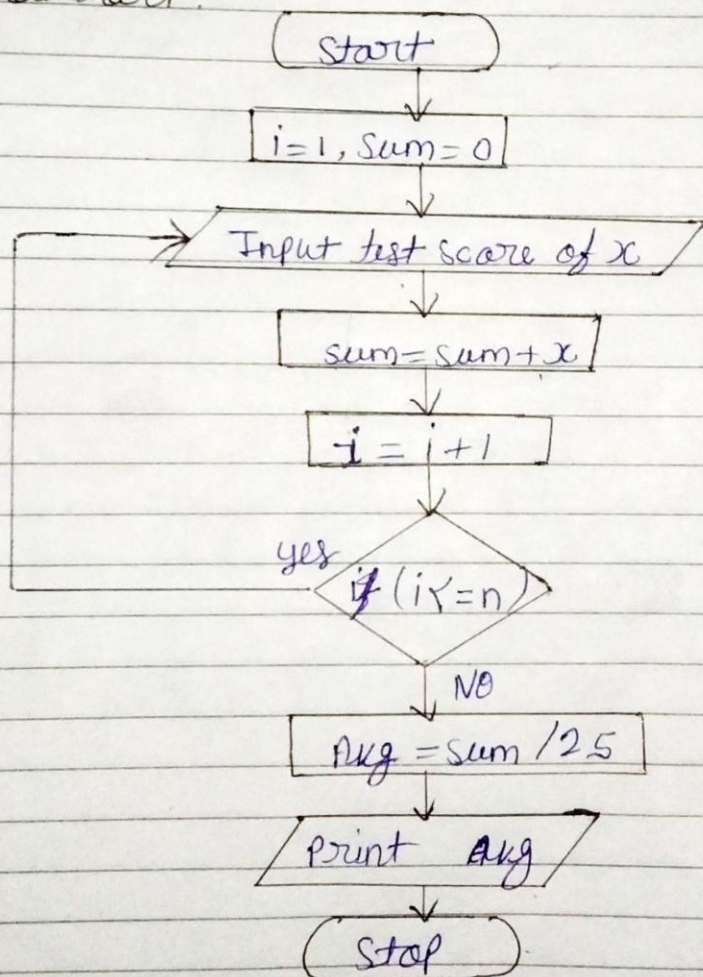 Start
i=1, Sum=0
Input test score of x
sum=sum+x
i = i+1
yes
if (i<=n)
NO
Avg = sum /25
Print Avg
Stop